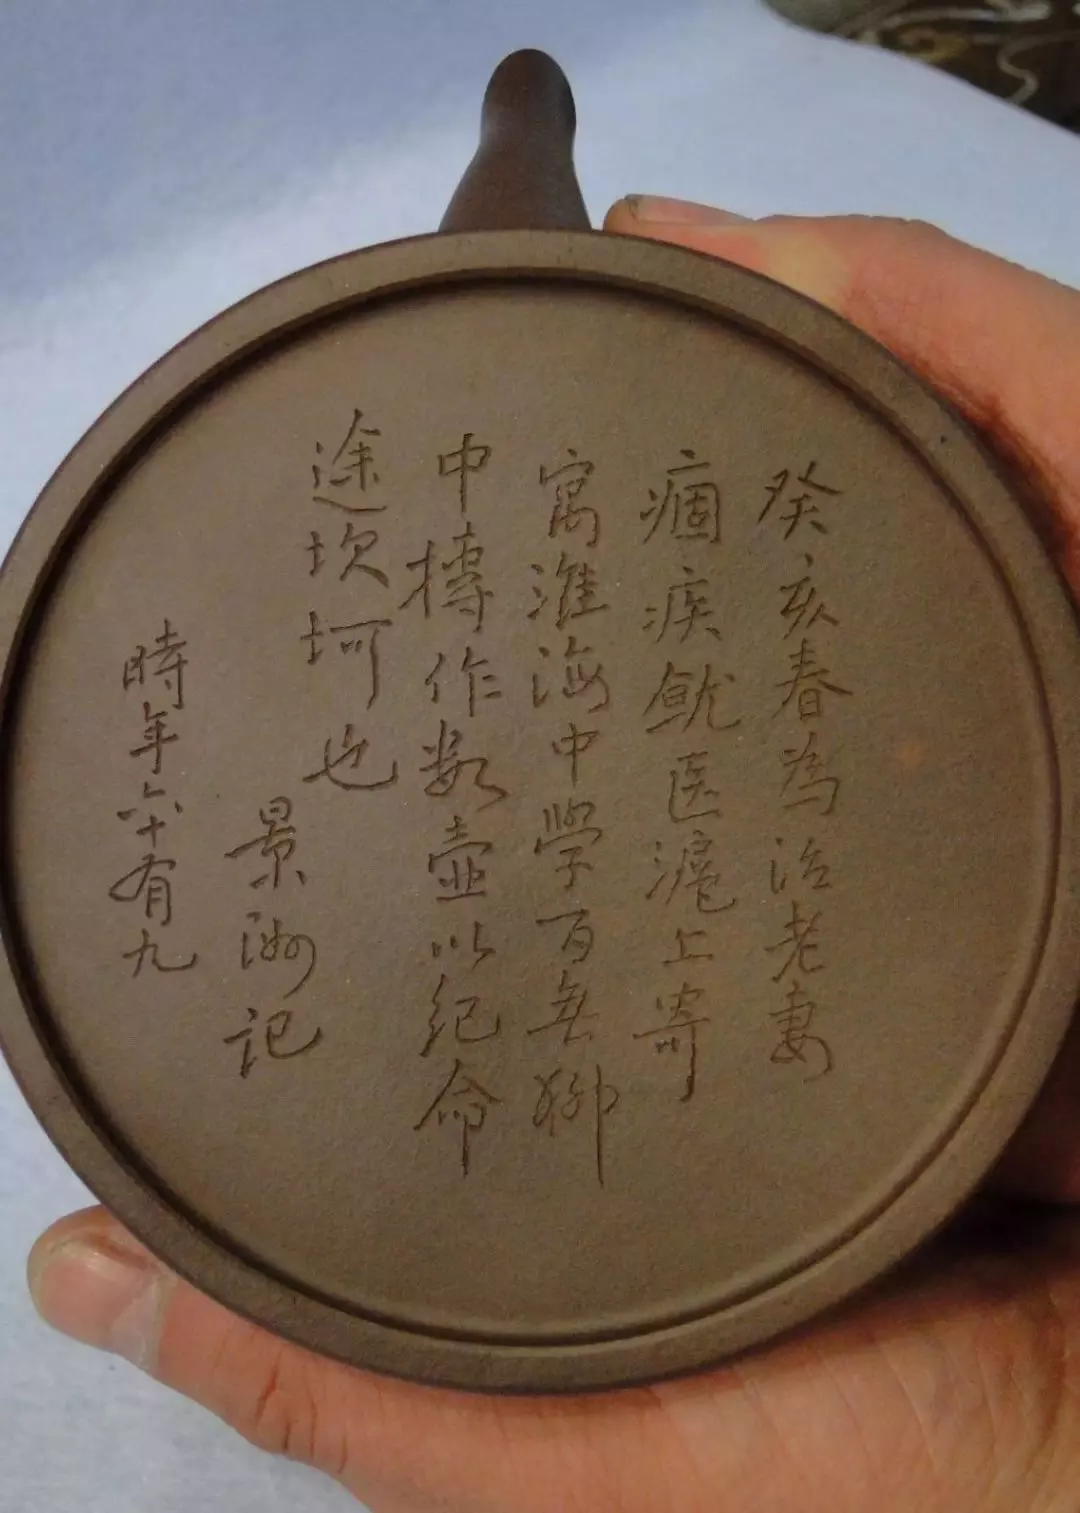 癸亥春為治老妻
痼疾就医滬上寄
寓淮海中學百無聊
中摶作数壺以紀命
途坎坷也
景洲記
時年六十有九